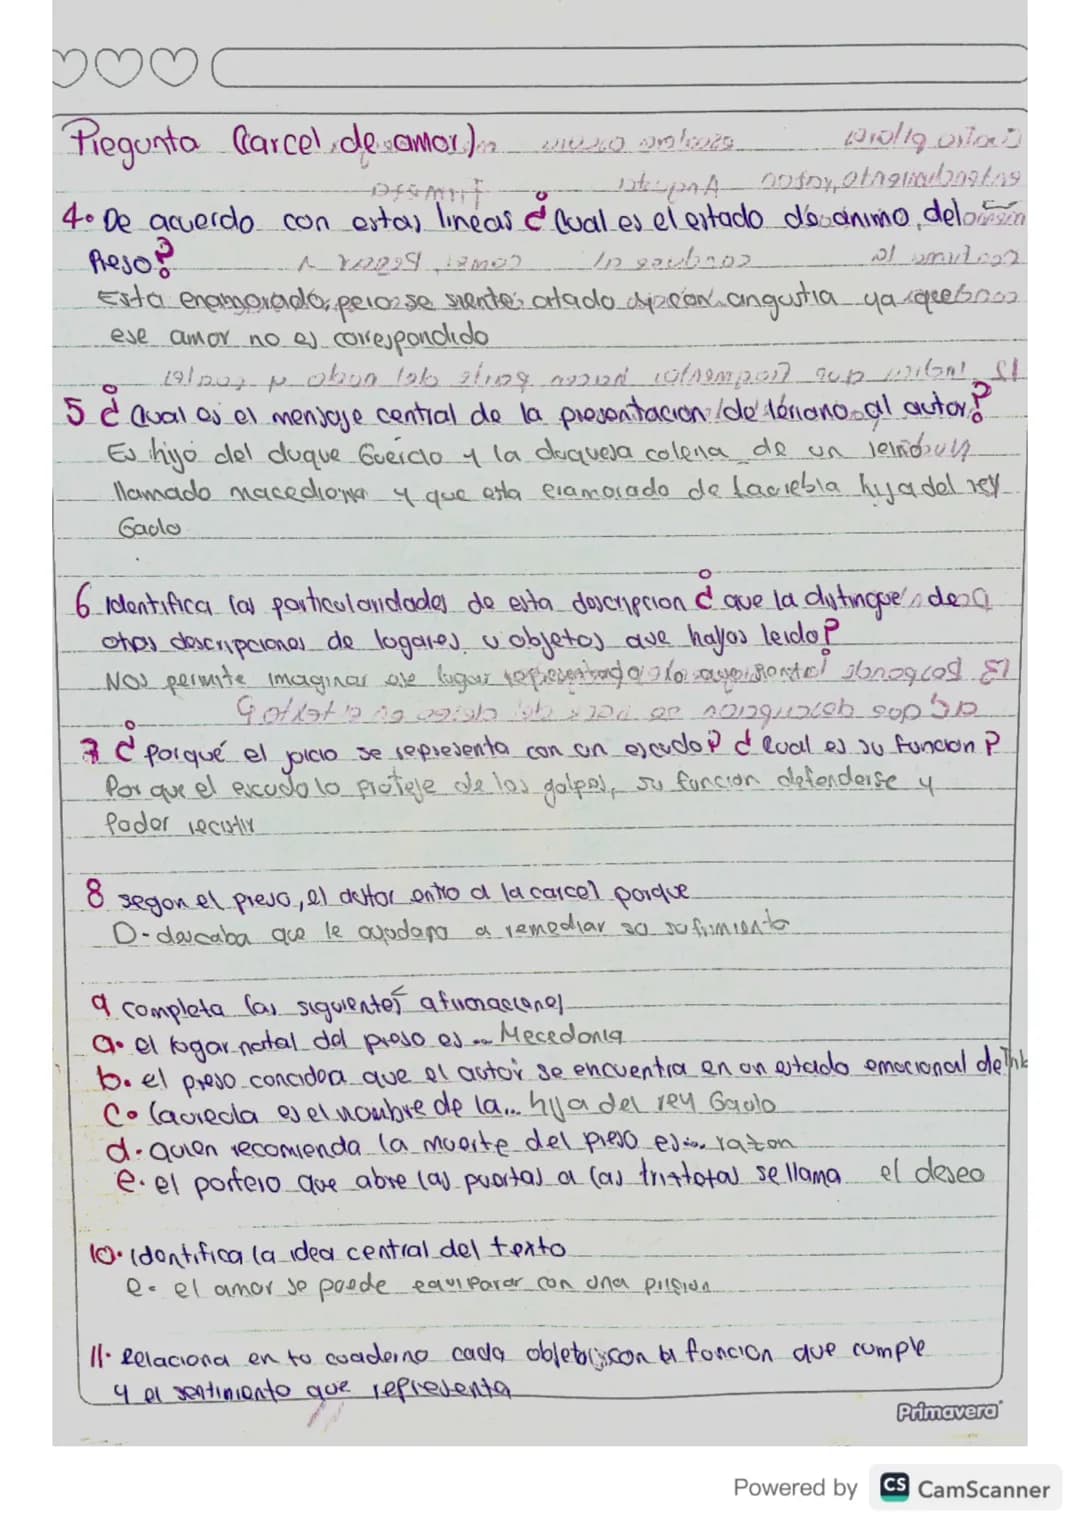 Pregunta (carcel de amor)
4. De acuerdo con estas lineas ¿Cual es el estado de animo del
Preso?
Esta enamorado, pero se siente atado con angustia ya que
ese amor no es correspondido
5 ¿Cual es el mensaje central de la presentacion de leriano al autor?
Es hijo del duque Guercio y la duquesa coleria de un
llamado macedionia y que esta enamorado de hija del rey
Gaolo
6 Identifica las particularidades de esta descripcion ¿que la distingue de
otras descripciones de logares u objetos que hallas leido?
Nos permite imaginar ese lugar representado
7 ¿porqué el juicio se representa con un escudo? ¿Cual es su funcion?
Por que el escudo lo proteje de los golpes, su funcion defenderse y
Poder recistir
8 segon el preso, el autor entro a la carcel porque
D- deseaba que le ayudara a remediar su sufrimiento
9 completa las siguientes afirmaciones
a. el logar natal del preso es ... Mecedonia
b. el preso concidera que el autor se encuentra en un estado emocional de
C. laurecla es el nombre de la... hija del rey Gaulo
d. quien recomienda la muerte del preso es... razon
e. el portero que abre las puertas a las se llama el deseo
10. identifica la idea central del texto
e- el amor se puede equiparar con una prision
11. Relaciona en tu cuaderno cada objeto con la funcion que cumple
y el sentimiento que representa
Primavera
Powered by CS CamScanner